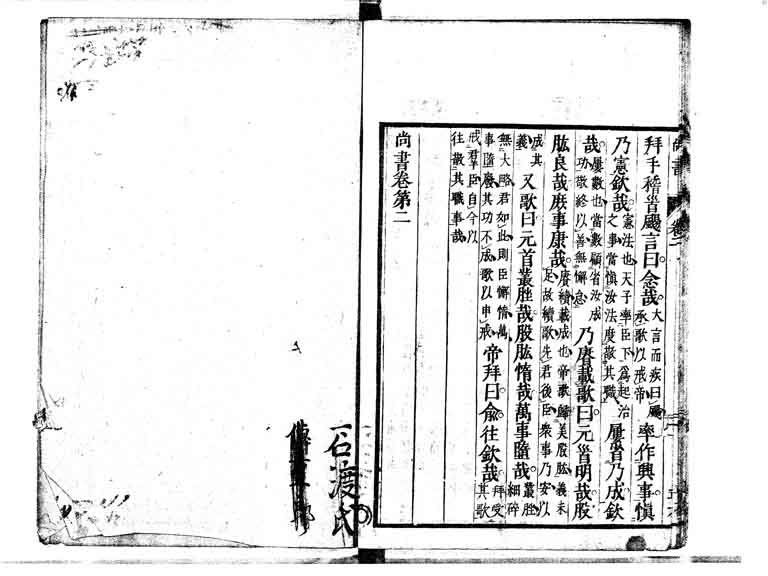 拜手稽首颺言曰念哉大言而疾曰颺承歌以戒帝率作興事愼
乃憲欽哉憲法也天子率臣下爲起治之事當愼汝法度敬其職屢省乃成欽
哉屢數也當數顧省汝成功敬終以善無懈怠乃賡載歌曰元首明哉股
肱良哉庶事康哉賡續載成也帝歌歸美股肱義未足故續歌先君後臣衆事乃安以
成其義又歌曰元首叢脞哉股肱惰哉萬事隳哉叢脞細碎
無大略君如此則臣懈惰萬事隳廢其功不成歌以申戒帝拜曰兪往欽哉拜受其歌
戒羣臣自今以往敬其職事哉
尚書卷第二
石渡氏